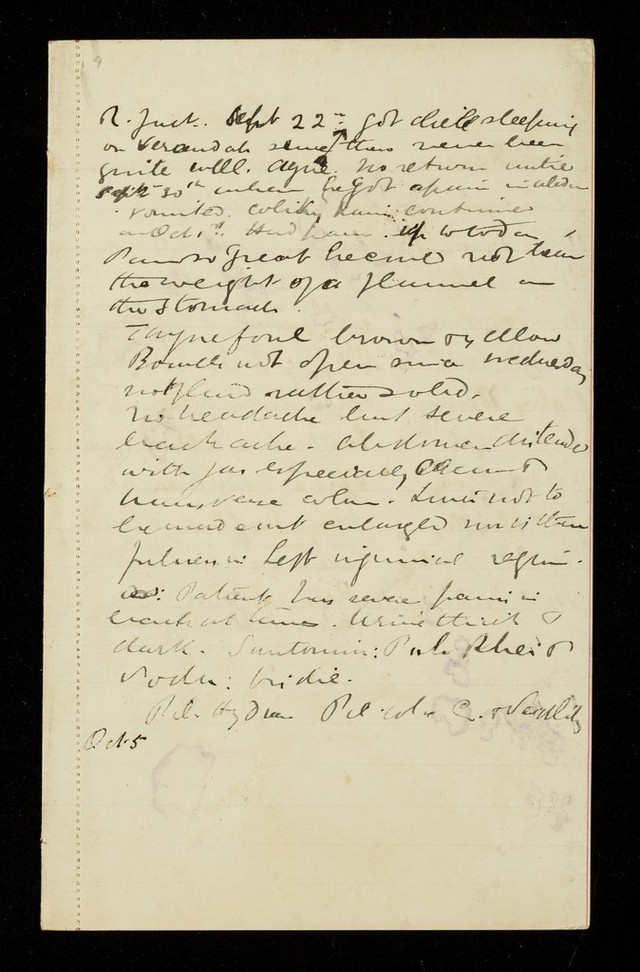 R. Jack. Sept 22nd got chill sleeping
on Verandah since then never been
quite well. Ague. No return until
Sept 30th when he got again
Vomited. colicky pain continued
on Oct 1st. Had pain up to today
Pain so great he could not bear
the weight of a flannel on
the stomach.
Tongue foul brown & yellow
Bowels not open since Wednesday
not fluid rather solid.
No headache but severe
backache. Abdomen distended
with gas especially caecum &
transverse colon. Liver not to
be made out enlarged nor is there
fulness in left inguinal region.
Patient has severe pain in
back at times. Urine thick &
dark. Santonin: Pulv Rhei &
Soda: bis die.
Pil. Hydrarg Pil. col. Co. & Seidlitz
Oct 5